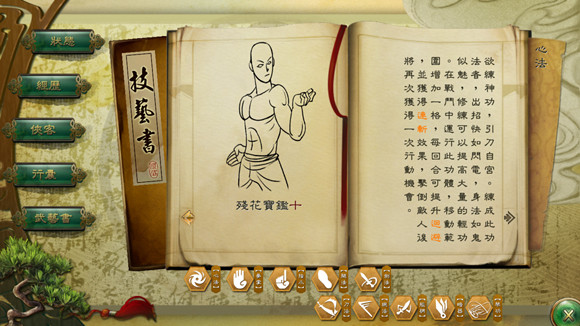 狀態
經歷
俠客
行囊
技藝書
殘花寶鑑十
心法
欲練神功，引刀自宮。練成此功
法者，出招快如閃電，身法如鬼
似魅，修練可以提高大量的輕功
。在戰鬥中運行此功體，移動範
圍增加一格，每回合可提升迴避
，並獲得連斬效果，擊倒敵人後
將再次獲得一次行動機會。